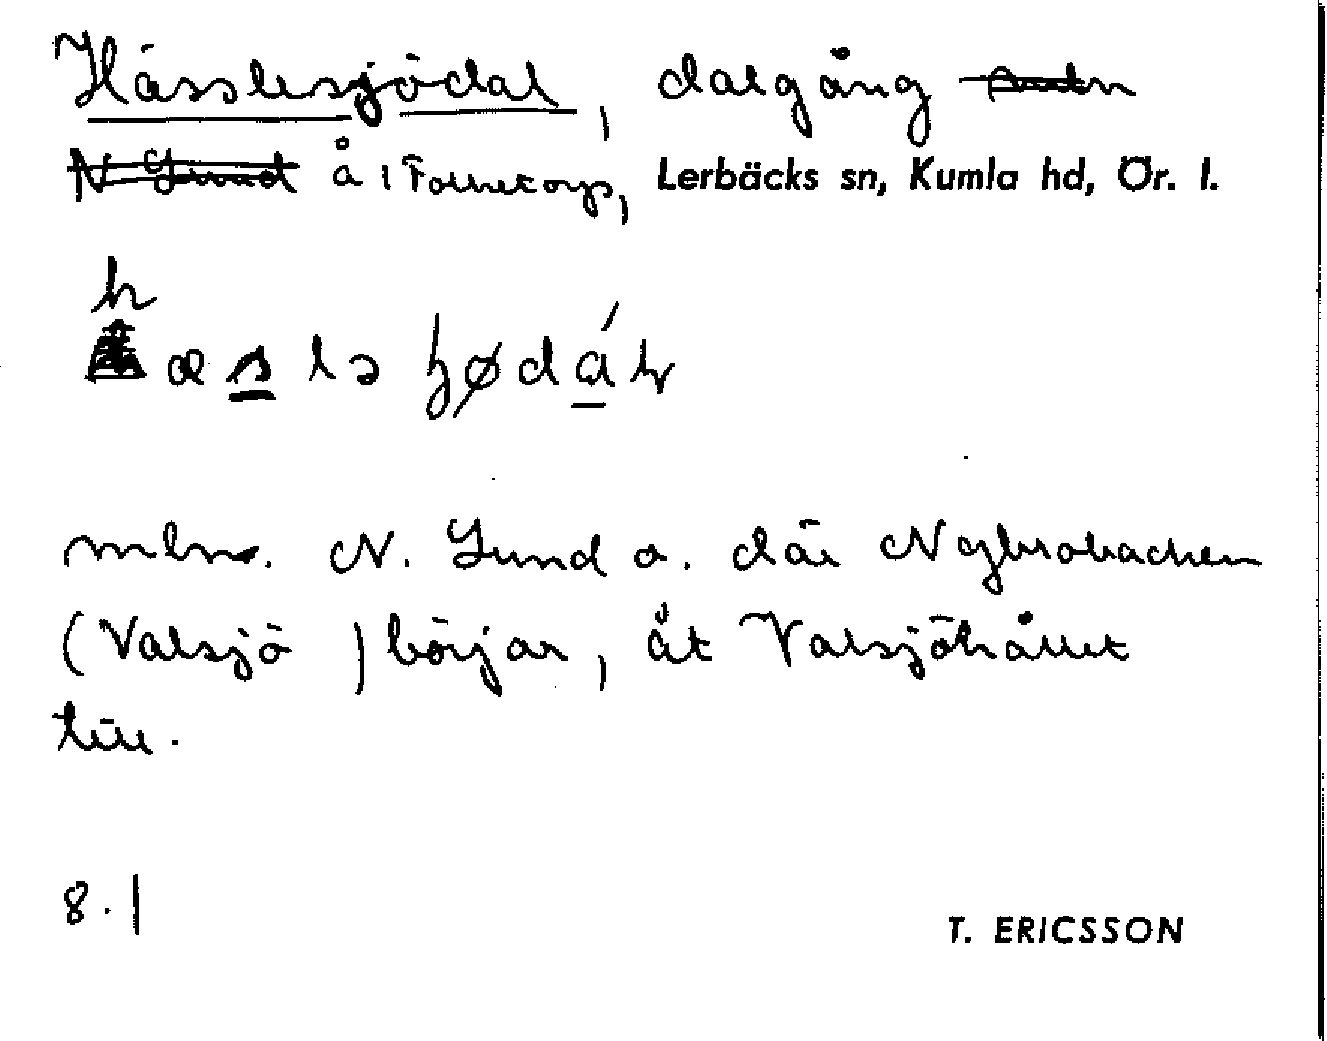 Hässlesjödal, dalgång
N Lund å i Folketorp, Lerbäcks sn, Kumla hd, Ör. l.
h
mln. N. Lund o. där Nybrobacken
(Valsjö ) börjar, åt Valsjöhållet
till.
8.1
T. ERICSSON